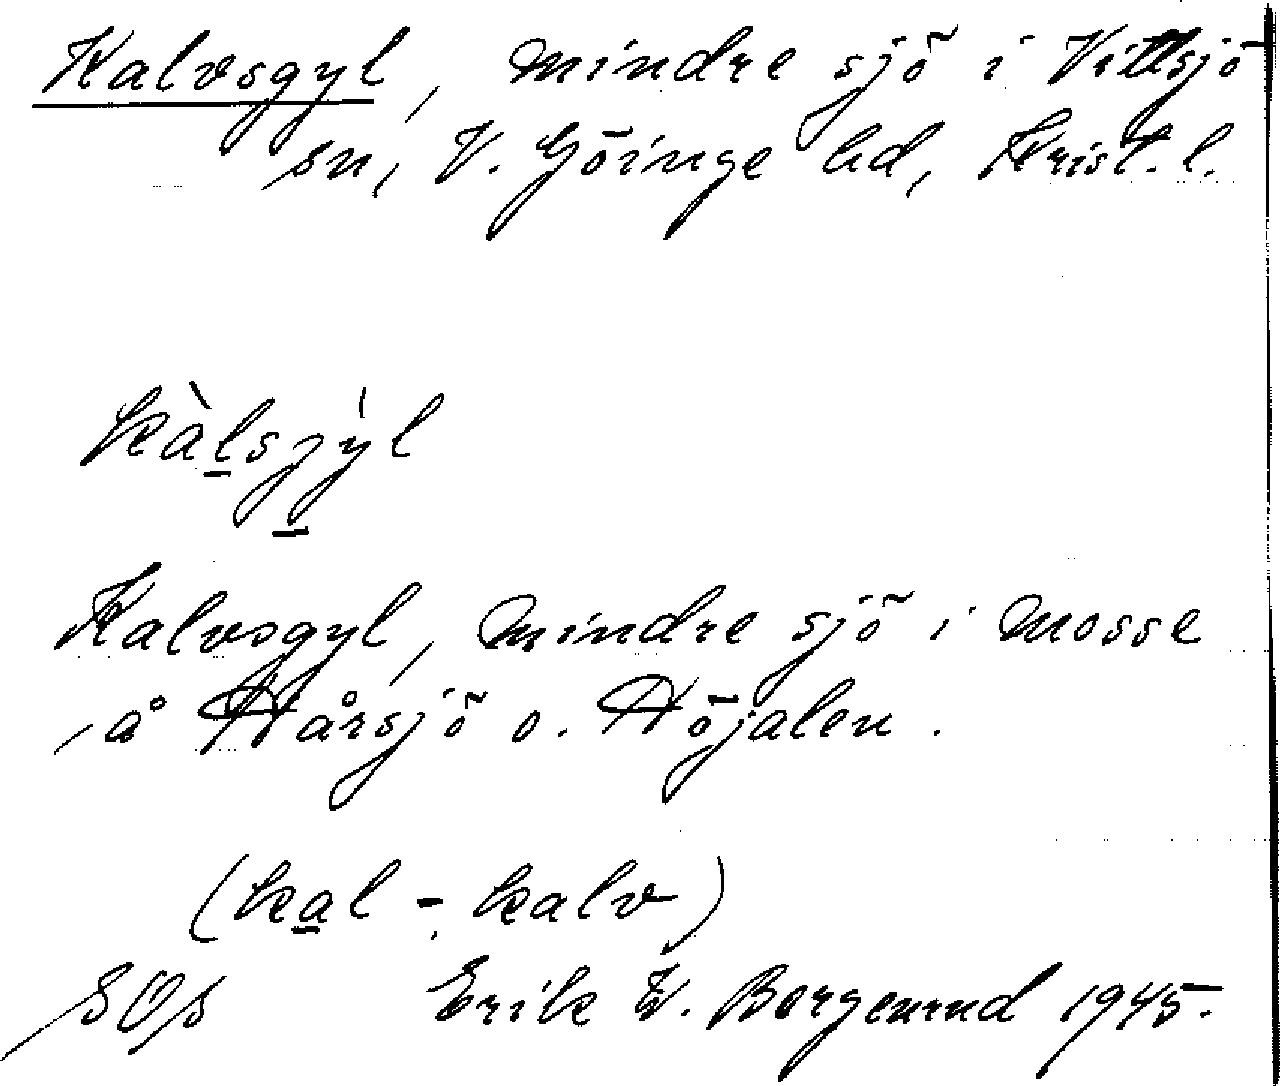 Kalvsgyl, mindre sjö i Vittsjö
sn, V. Göinge hd, Krist. l.
kàlsjýl
Kalvsgyl, mindre sjö i mosse
å Hårsjö o. Höjalen.
(kal - kalv)
Erik W. 1945.